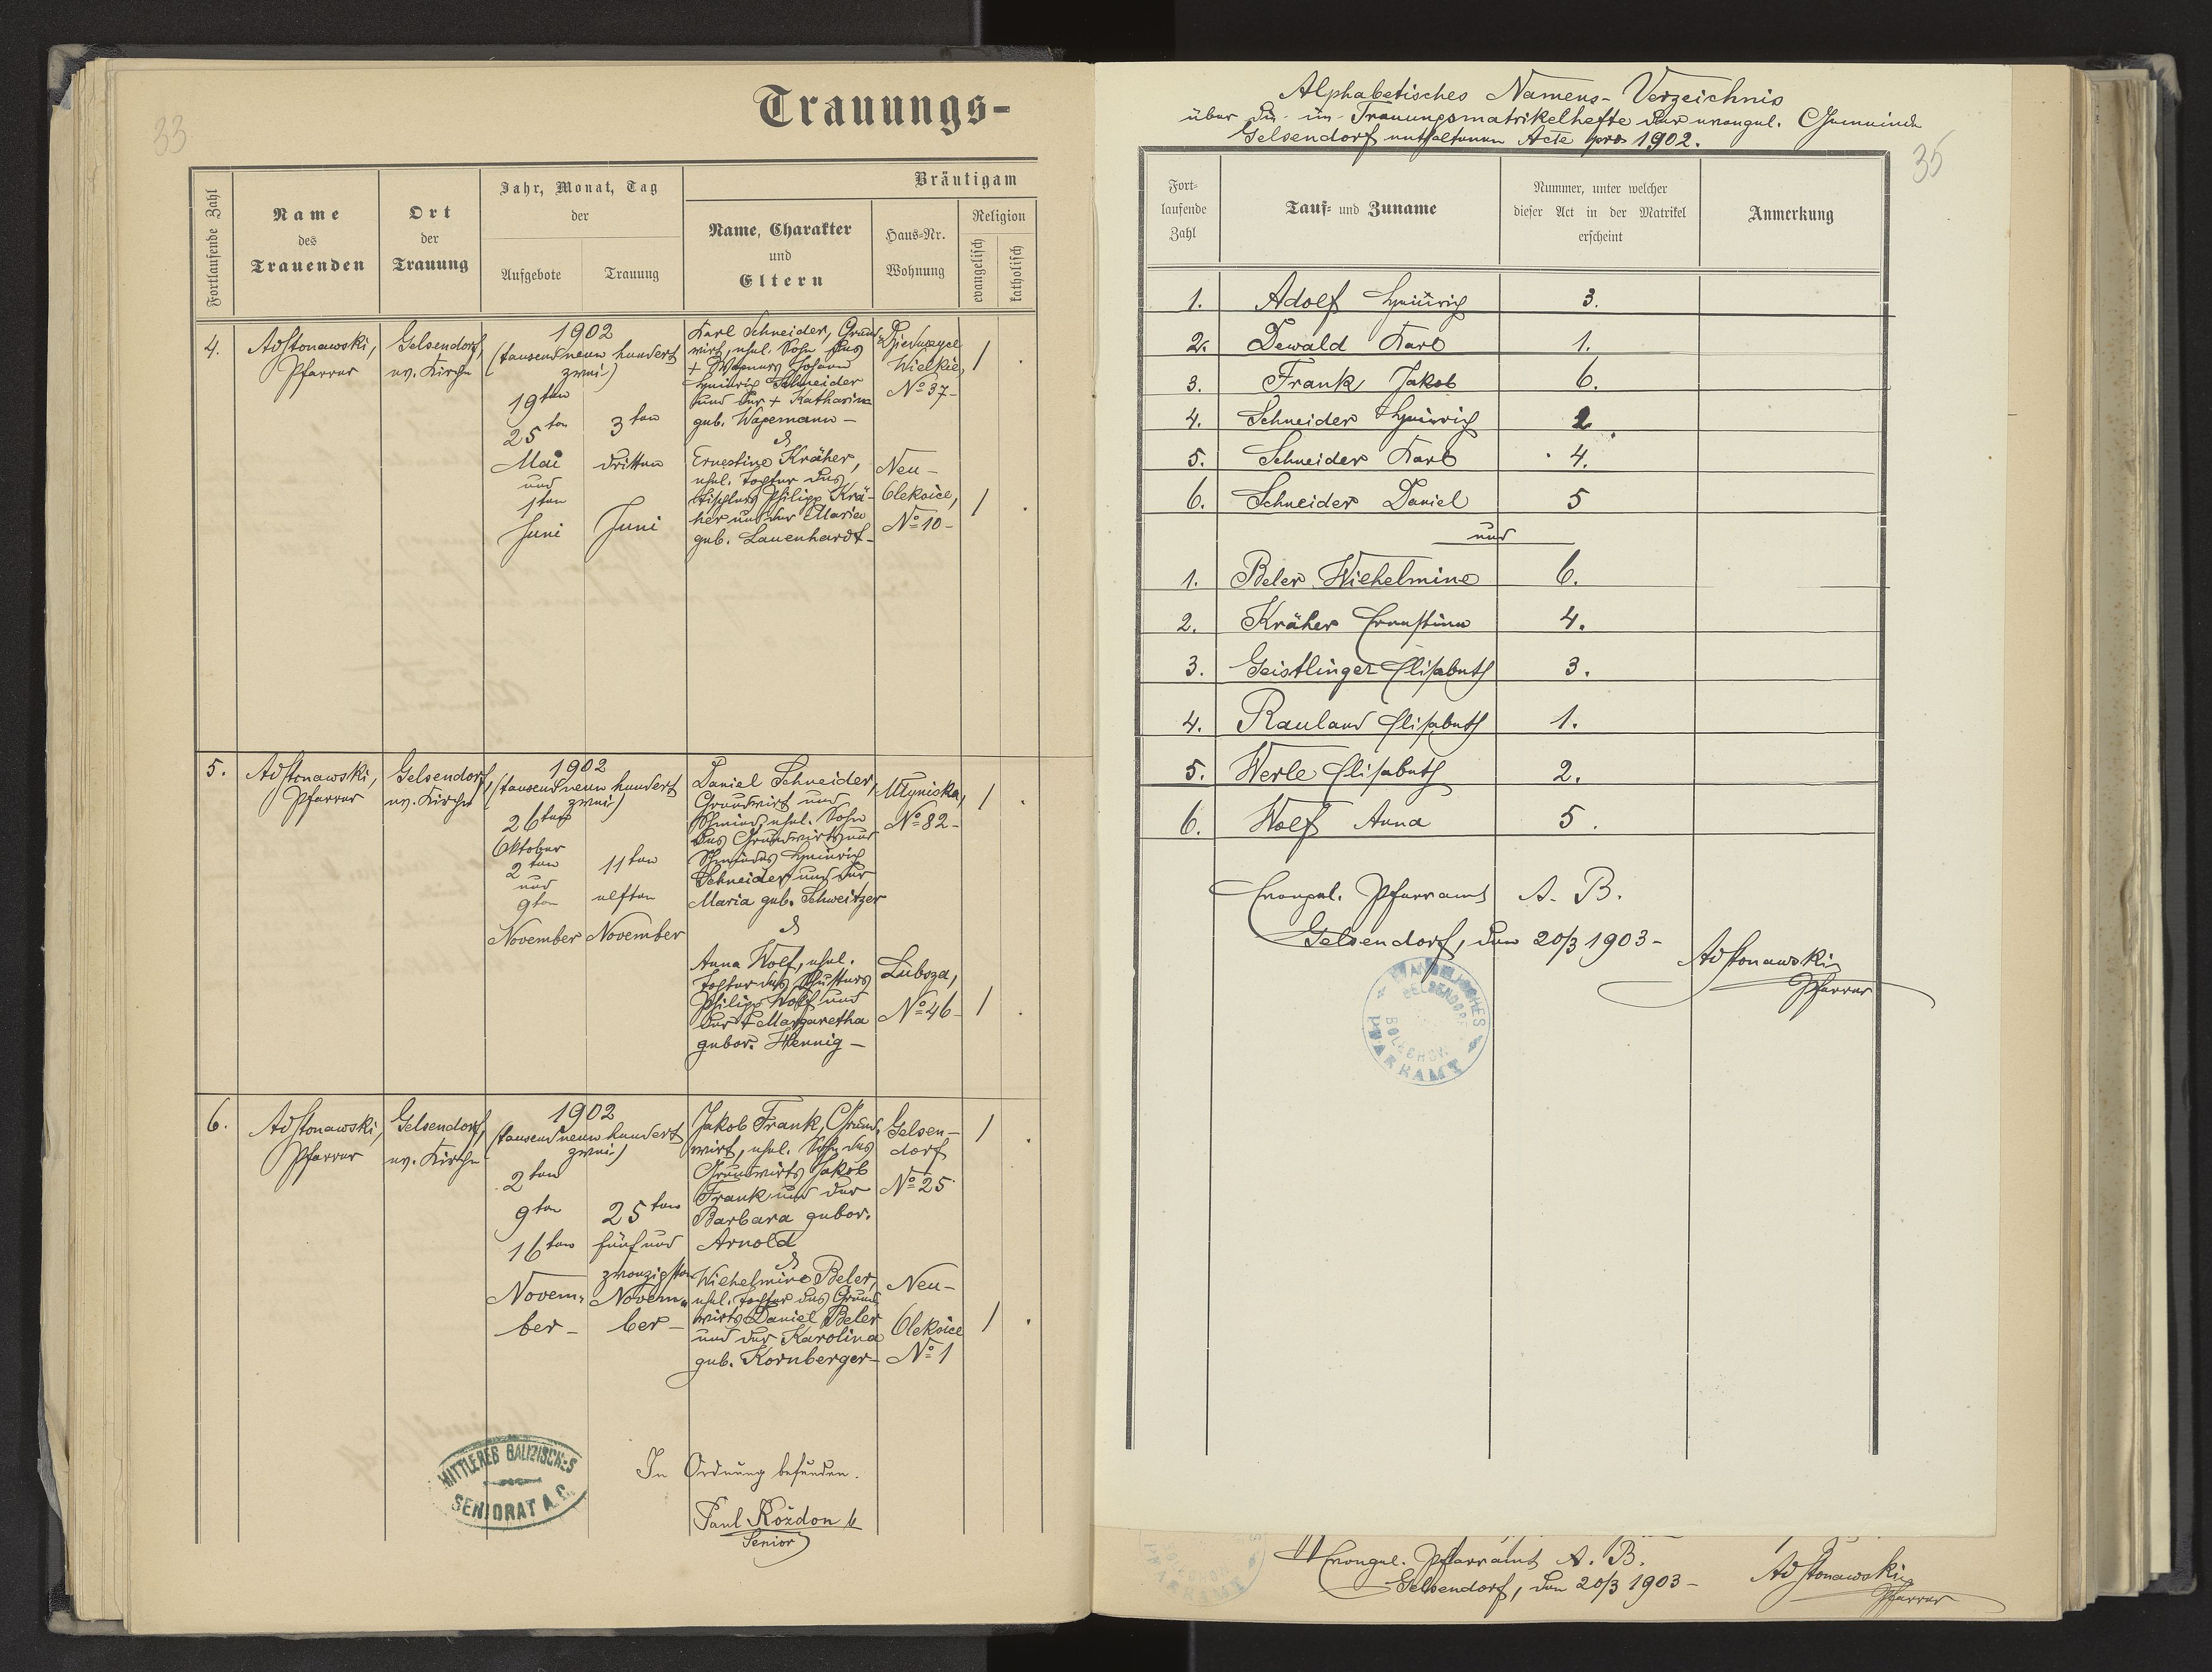 33
Trauungs-
Fortlaufende Zahl
Name
des
Trauenden
Ort
der
Trauung
Jahr, Monat, Tag
der
Aufgebote
Trauung
Bräutigam
Name, Charakter
und
Eltern
Haus-Nr.
Wohnung
Religion
evangelisch
katholisch
4.
Pfarrer
Gelsendorf,
ev. Kirche
1902
(tausend neun hundert
zwei)
19ten
25ten
Mai
und
1ten
Juni
3ten
dritten
Juni
Karl Schneider, Grund-
wirt, ehel. Sohn des
+ Wagners Johann
Heinrich Schneider
und der + Katharina
geb. Wagemann –
&
Ernestine Kräher,
ehel. Tochter des
Tischlers Philipp Krä-
her und der Maria
geb. Lauenhardt –
Wielkie,
No 37 –
Neu –
Oleksice,
No 10 –
1
1
5.
Pfarrer
Gelsendorf,
ev. Kirche
1902
(tausend neun hundert
zwei)
26ten
Oktober
2ten
und
9ten
November
11ten
elften
November
Daniel Schneider,
Grundwirt und
Schmied, ehel. Sohn
des Grundwirts und
Schmieds Heinrich
Schneider und der
Maria geb. Schweitzer
&
Anna Wolf, ehel.
Tochter des Schusters
Philipp Wolf und
der + Margaretha
gebor. Hennig –
Mlyniska,
No 82 –
Lubsza,
No 46 –
1
1
6.
Pfarrer
Gelsendorf,
ev. Kirche
1902
(tausend neun hundert
zwei)
2ten
9ten
16ten
Novem-
ber –
25ten
fünf und
zwanzigsten
Novem-
ber –
Jakob Frank, Grund-
wirt, ehel. Sohn des
Grundwirts Jakob
Frank und der
Barbara gebor.
Arnold
&
Wilhelmine Beler,
ehel. Tochter des Grund-
wirts Daniel Beler
und der Karolina
geb. Kornberger –
Gelsen-
dorf
No 25
Neu –
Oleksice
No 1
1
1
MITTLERES GALIZISCHES
SENIORAT A. C.
In Ordnung befunden.
Paul Kozdon
Senior
Alphabetisches Namens-Verzeichnis
über die im Trauungsmatrikelhefte der evangel. Gemeinde
Gelsendorf enthaltenen Acte pro 1902.
35
Fort-
laufende
Zahl
Tauf- und Zuname
Nummer, unter welcher
dieser Act in der Matrikel
erscheint
Anmerkung
1. Adolf Heinrich 3.
2. Dewald Karl 1.
3. Frank Jakob 6.
4. Schneider Heinrich 2
5. Schneider Karl 4.
6. Schneider Daniel 5
und
1. Beler Wilhelmine 6.
2. Kräher Ernestine 4.
3. Geistlinger Elisabeth 3.
4. Rauland Elisabeth 1.
5. Werle Elisabeth 2.
6. Wolf Anna 5.
Evangel. Pfarramt A. B.
Gelsendorf, den 20/3 1903 –
Pfarrer
EVANGELISCHES
PFARRAMT
GELSENDORF
BOLECHOW
Evangel. Pfarramt A. B.
Gelsendorf, den 20/3 1903 –
Pfarrer